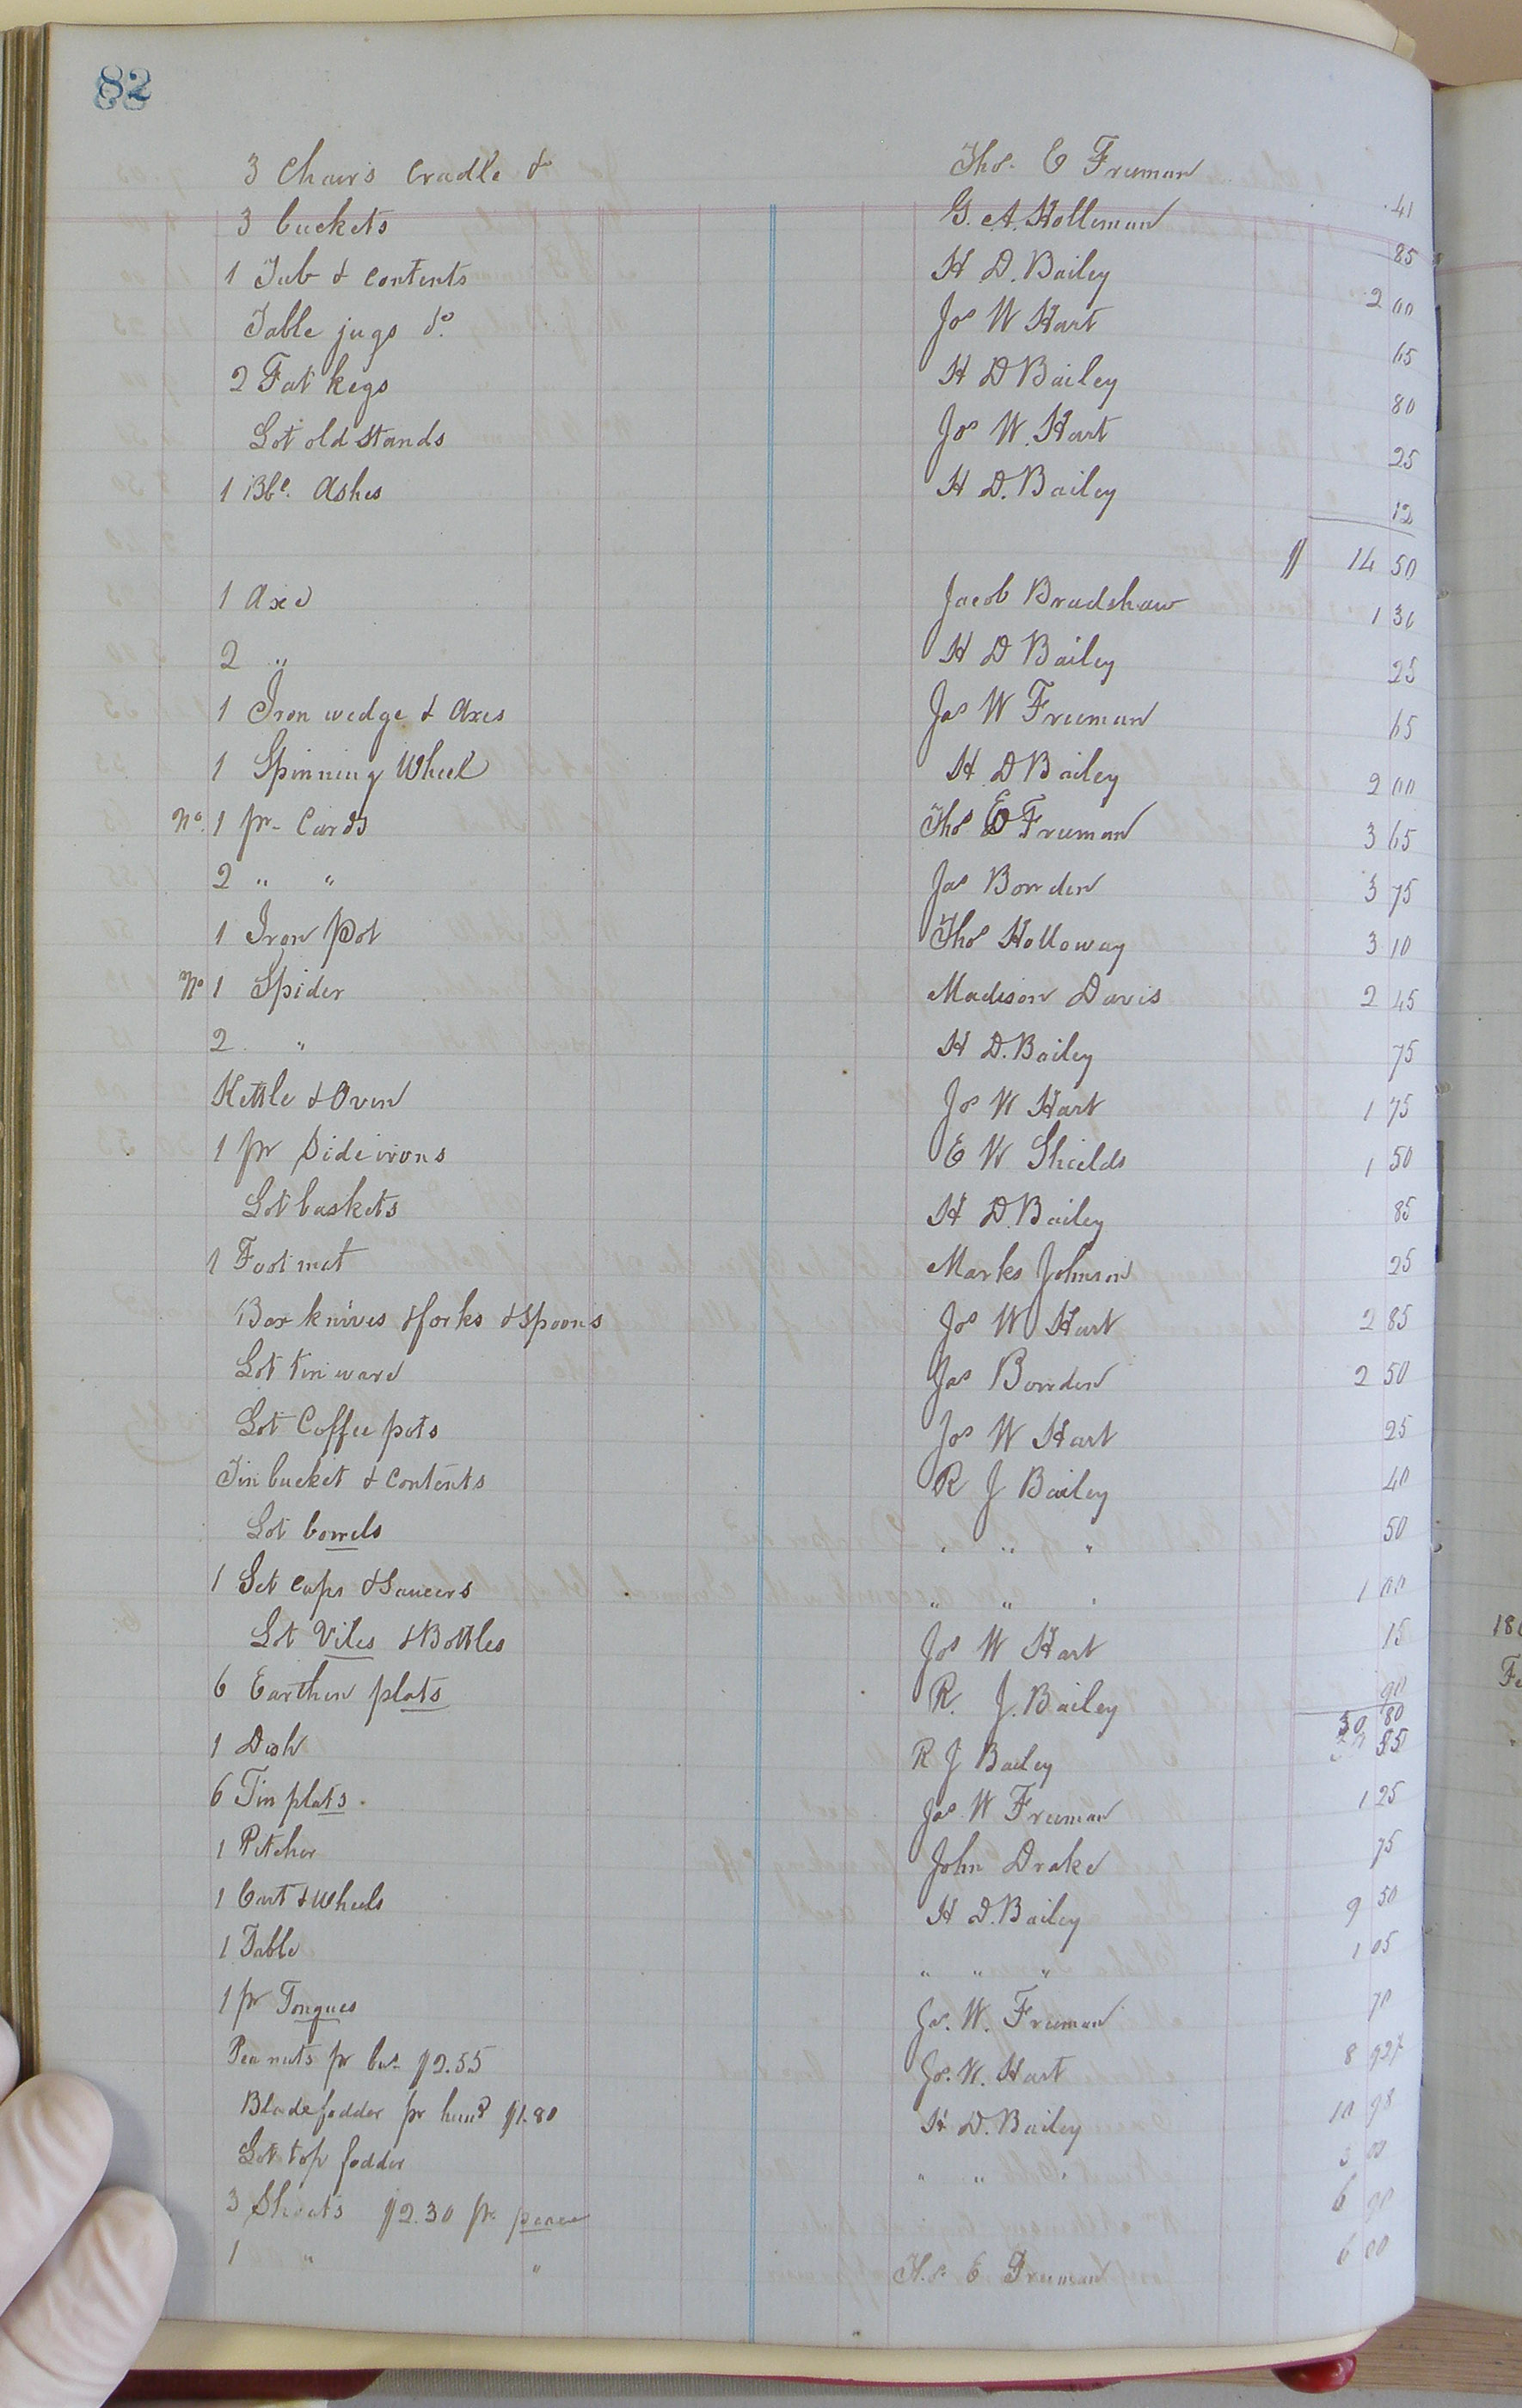 82
3 Chairs Cradle & Thos. E Freeman 41
3 buckets G. A. Holleman 85
1 Tub & Contents H D. Bailey 2 00
Table jugs &c. Jos W Hart 65
2 Fat kegs H D Bailey 80
Lot old stands Jos W. Hart 25
1 Bbl. Ashes H D. Bailey 12
$ 14 50
1 Axe Jacob Bradshaw 1 30
2 " H D Bailey 25
1 Iron wedge & Axes Jas W Freeman 65
1 Spinning Wheel H. D Bailey 2 00
No. 1 pr. Cards Thos E Freeman 3 65
2 " " Jas Bowden 3 75
1 Iron Pot Thos Holloway 3 10
No 1 Spider Madison Davis 2 45
2 " H D. Bailey 75
Kettle & Oven Jos W Hart 1 75
1 pr Side irons E W Shields 1 50
Lot baskets H D. Bailey 85
1 Foot mat Marks Johnson 25
Box knives & forks & Spoons Jos W Hart 2 85
Lot tin ware Jas Bowden 2 50
Lot Coffee pots Jos W Hart 25
Tin bucket & Contents R J Bailey 40
Lot bowels " " " 50
1 Set Cups & Saucers " " " 1 00
Lot Viles & Bottles Jos W Hart 15
6 Earthen plats R. J. Bailey 90
30 80
1 Dish R J Bailey 55
6 Tin plats. Jas. W Freeman 1 25
1 Pitcher John Drake 75
1 Cart & Wheels H D. Bailey 9 50
1 Table " " " 1 05
1 pr Tongues Jas. W. Freeman 70
Pea nuts pr bus. $2.55 Jos. W. Hart 8 92½
Blade fodder pr hund $1.80 H D. Bailey 10 98
Lot top fodder " " " 3 00
3 Shoats $2.30 pr peace 6 90
1 " " Thos E Freeman 6 00